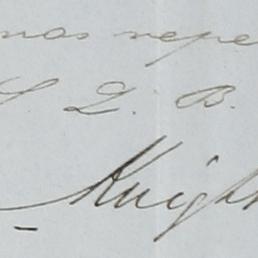 mas repe
S L. B.
Knight